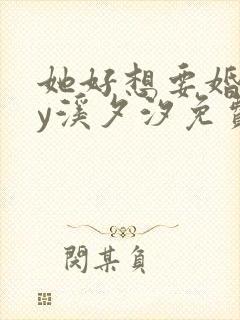 她好想要婚
y溪夕汐免
閔某負